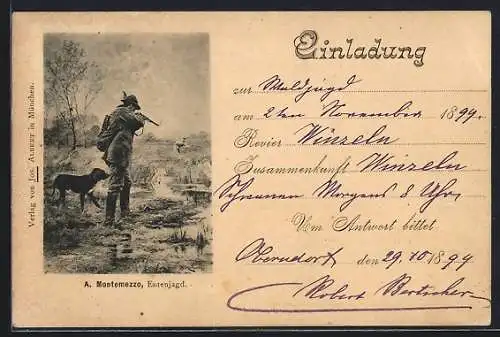 Verlag von Jos. Albert in München.
A. Montemezzo, Entenjagd.
Einladung
zur Waldjagd
am 2ten November 1899.
Revier Winzeln
Zusammenkunft Winzeln
Morgens 8 Uhr,
Um Antwort bittet
Oberndorf, den 29.10 1899
Robert Bertscher